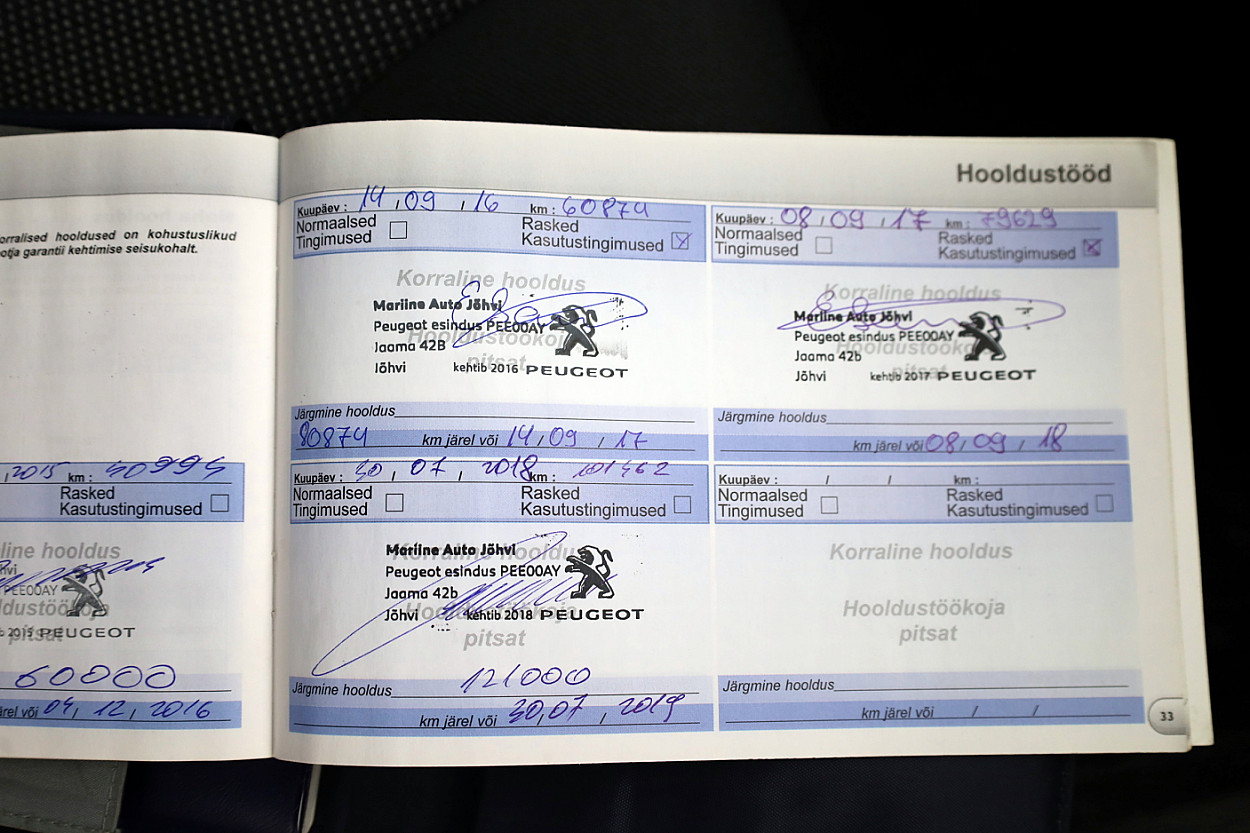 orralised hooldused on kohustuslikud
otja garantii kehtimise seisukohalt.
, 2015 km : 40994
Rasked
Kasutustingimused
line hooldus
hvi
PEE00AY
ldustöökoja
b 2015 PEUGEOT
pitsat
60000
ärel või 04, 12, 2016
Hooldustööd
Kuupäev : 14 , 09 , 16 km : 60874
Normaalsed
Tingimused
Rasked
Kasutustingimused
Korraline hooldus
Mariine Auto Jõhvi
Peugeot esindus PEE00AY
Hooldustöökoja
Jaama 42B
pitsat
Jõhvi kehtib 2016 PEUGEOT
Järgmine hooldus
80874 km järel või 14 , 09 , 17
Kuupäev : 08 , 09 , 17 km : 79629
Normaalsed
Tingimused
Rasked
Kasutustingimused
Korraline hooldus
Mariine Auto Jõhvi
Peugeot esindus PEE00AY
Hooldustöökoja
Jaama 42b
pitsat
Jõhvi kehtib 2017 PEUGEOT
Järgmine hooldus
km järel või 08 , 09 , 18
Kuupäev : 30 , 07 , 2018 km : 101462
Normaalsed
Tingimused
Rasked
Kasutustingimused
Korraline hooldus
Mariine Auto Jõhvi
Peugeot esindus PEE00AY
Jaama 42b
Hooldustöökoja
Jõhvi kehtib 2018 PEUGEOT
pitsat
Järgmine hooldus 121000
km järel või 30, 07 , 2019
Kuupäev : / / km :
Normaalsed
Tingimused
Rasked
Kasutustingimused
Korraline hooldus
Hooldustöökoja
pitsat
Järgmine hooldus
km järel või / /
33